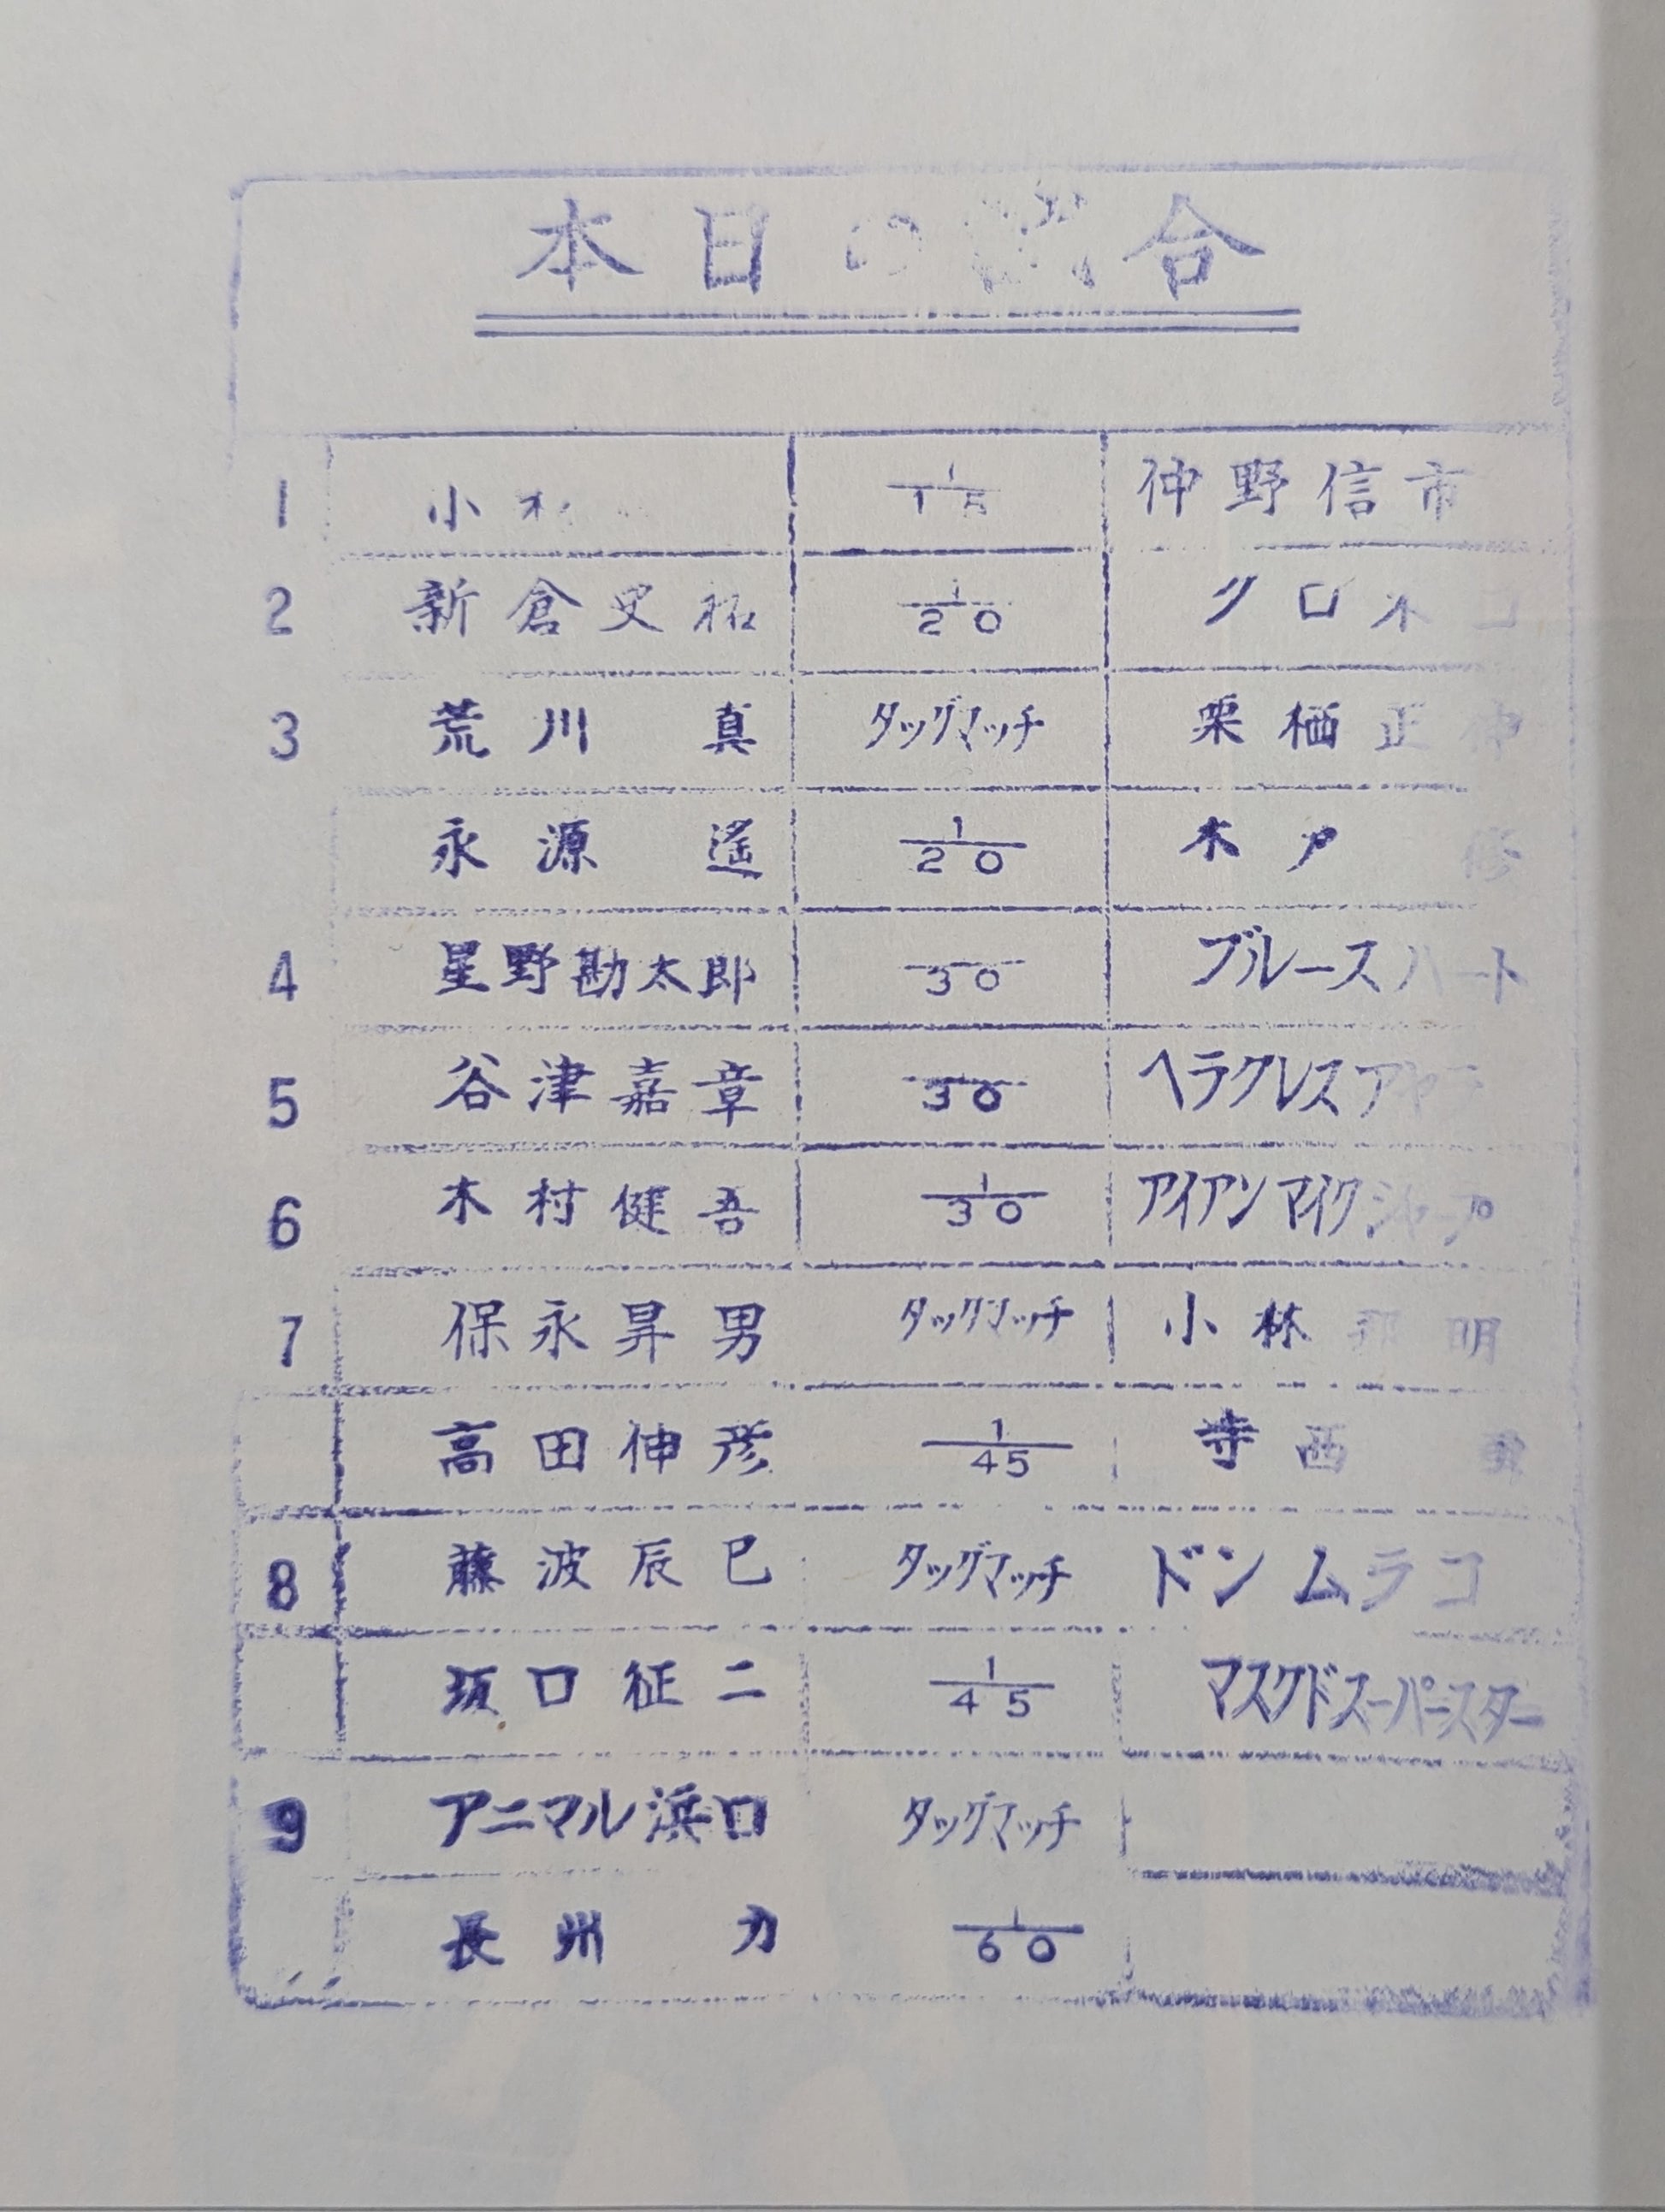 本日の試合
1 小 1/15 仲野信市
2 新倉史祐 1/20 クロネコ
3 荒川真 タッグマッチ 栗栖正伸
永源遙 1/20 木戸修
4 星野勘太郎 30 ブルースハート
5 谷津嘉章 1/30 ヘラクレス
6 木村健吾 1/30 アイアンマイクシャープ
7 保永昇男 タッグマッチ 小林邦明
高田伸彦 1/45 寺西勇
8 藤波辰巳 タッグマッチ ドンムラコ
坂口征二 1/45 マスクドスーパースター
9 アニマル浜口 タッグマッチ
長州力 1/60